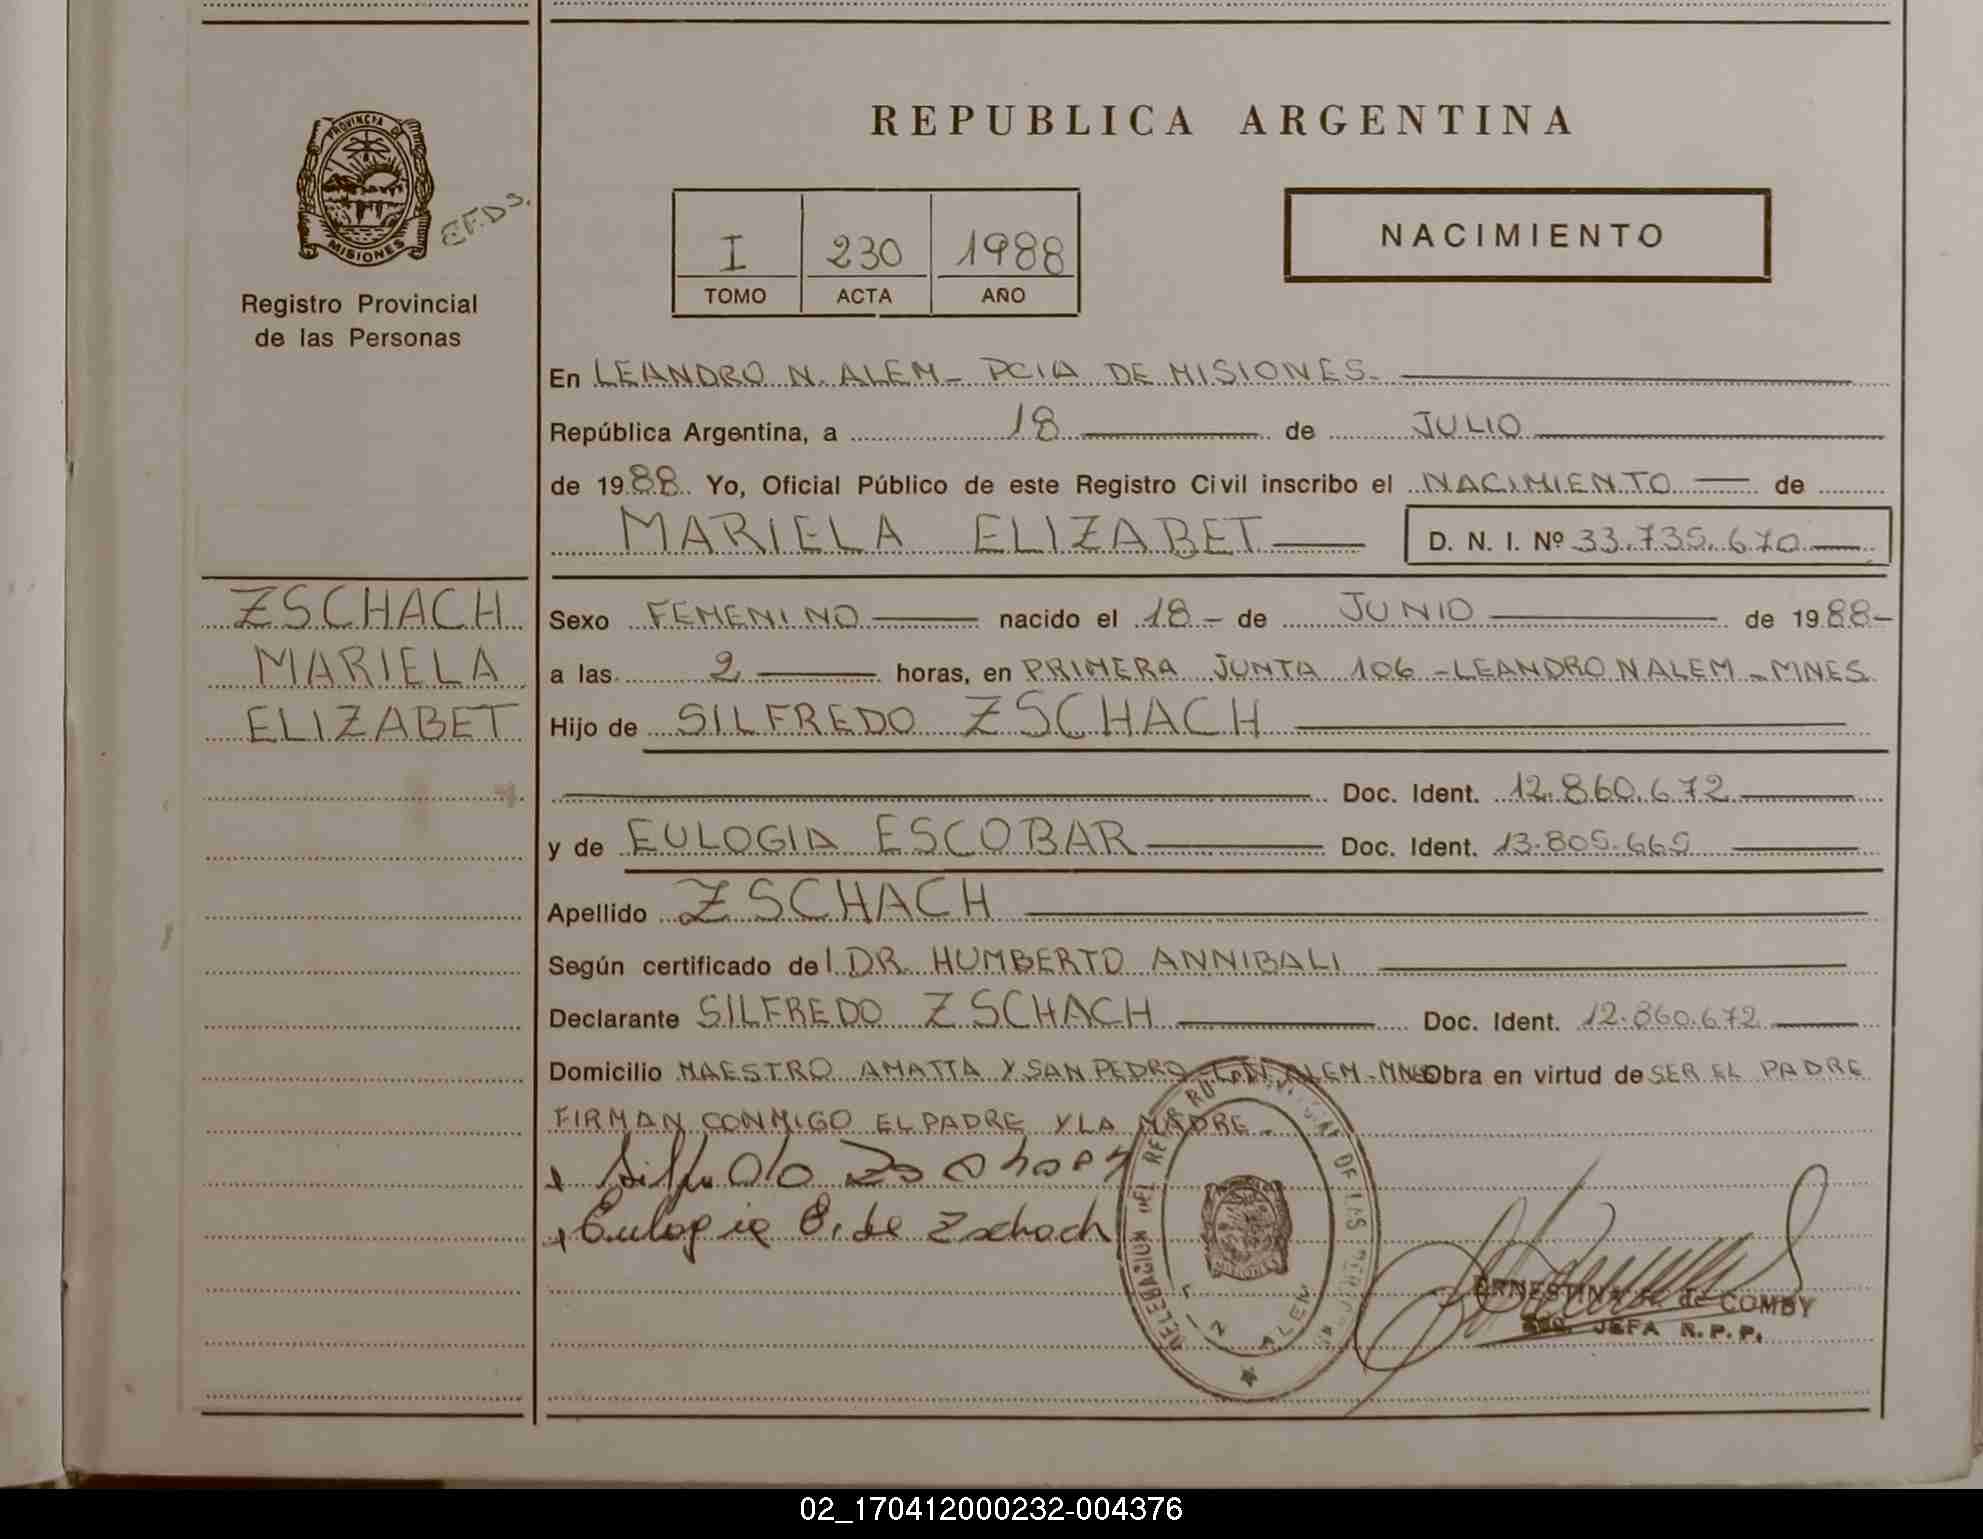 REPUBLICA ARGENTINA
PROVINCIA DE
MISIONES
E.F.D S.
Registro Provincial
de las Personas
I 230 1988
TOMO ACTA AÑO
NACIMIENTO
En LEANDRO N. ALEM - PCIA DE MISIONES.
República Argentina, a 18 de JULIO
de 1988. Yo, Oficial Público de este Registro Civil inscribo el NACIMIENTO de
MARIELA ELIZABET D. N. I. Nº 33.735.670
ZSCHACH
MARIELA
ELIZABET
Sexo FEMENINO nacido el 18 - de JUNIO de 1988 -
a las 2 horas, en PRIMERA JUNTA 106 - LEANDRO N ALEM - MNES.
Hijo de SILFREDO ZSCHACH
Doc. Ident. 12.860.672
y de EULOGIA ESCOBAR Doc. Ident. 13.805.665
Apellido ZSCHACH
Según certificado del DR. HUMBERTO ANNIBALI
Declarante SILFREDO ZSCHACH Doc. Ident. 12.860.672
Domicilio MAESTRO AMATTA Y SAN PEDRO L.N. ALEM - MNES Obra en virtud de SER EL PADRE
FIRMAN CONMIGO EL PADRE Y LA MADRE -
Eulogia E. de Zschach
DELEGACION DEL DE LAS
MISIONES
L. N. ALEM
ERNESTINA R. de COMBY
JEFA R. P. P.
02_170412000232-004376